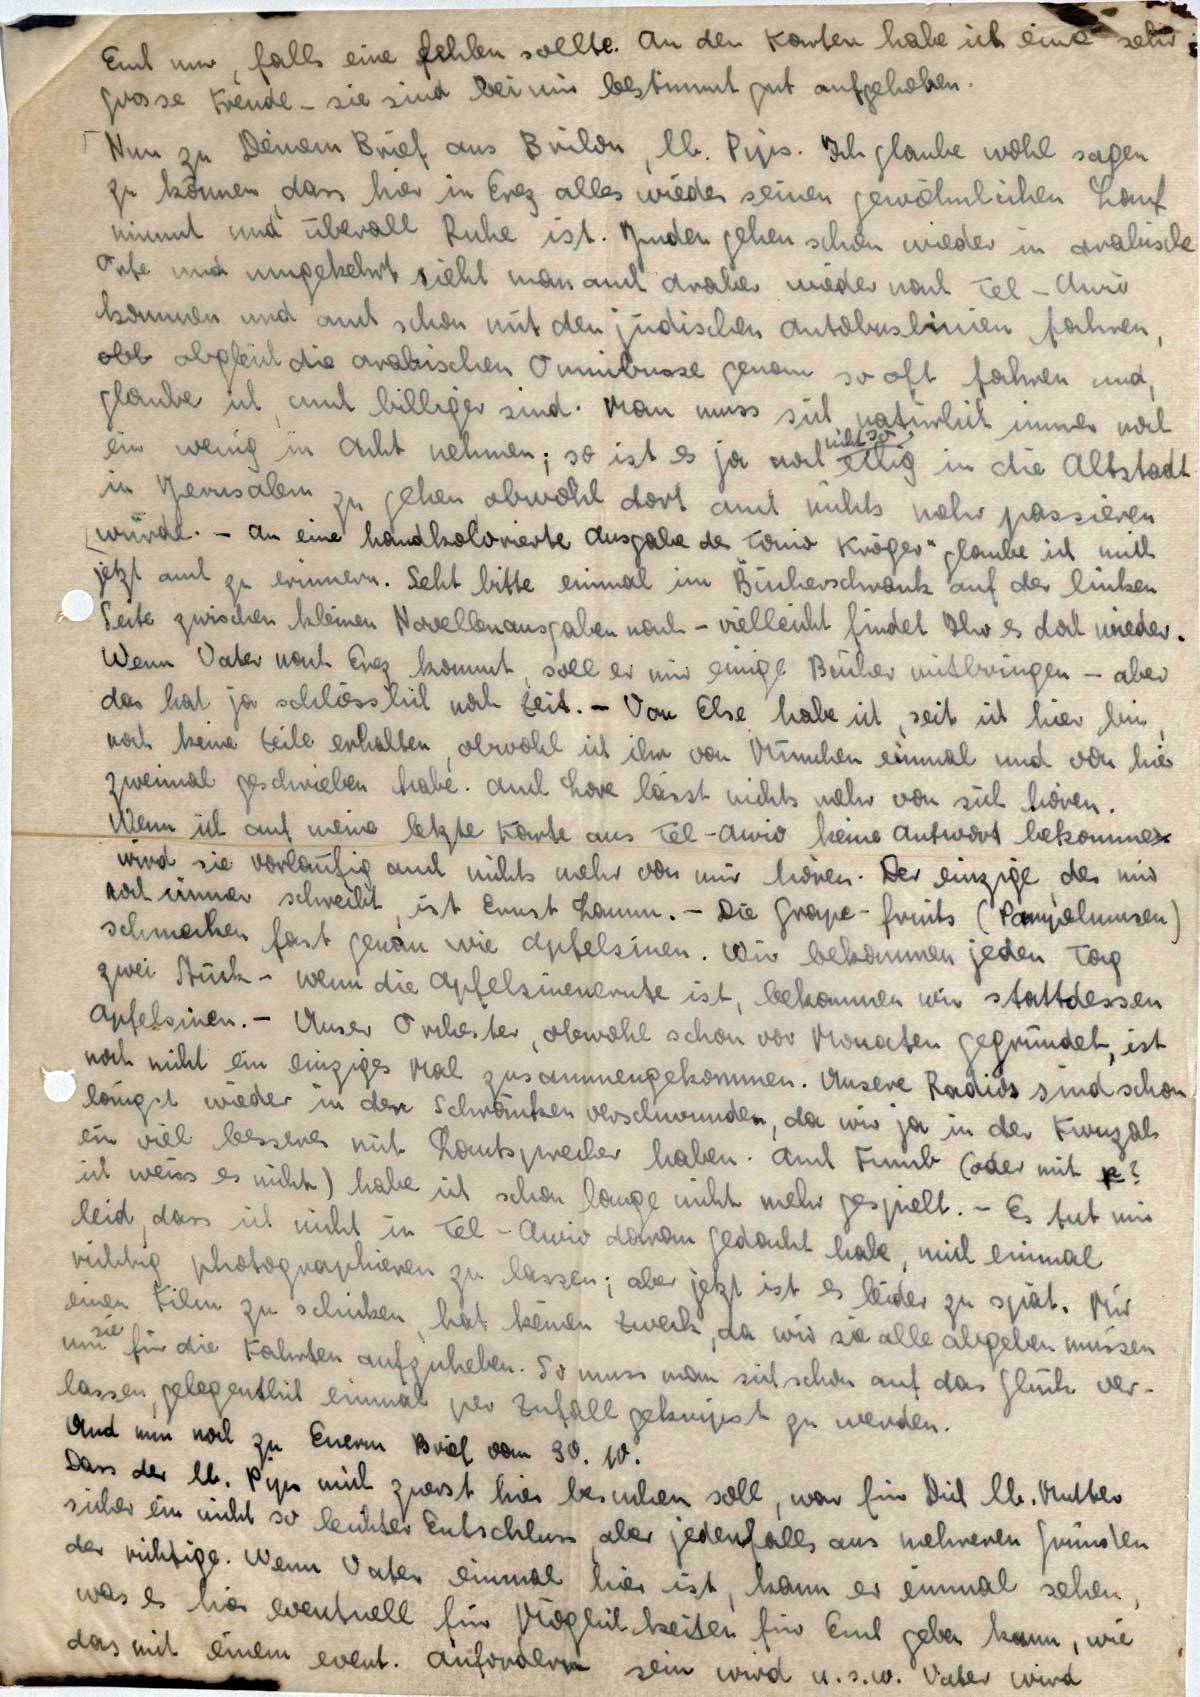 Euch nur, falls eine fehlen sollte. An den Karten habe ich eine sehr
grosse Freude – sie sind bei mir bestimmt gut aufgehoben.
Nun zu Deinem Brief aus Brilon, lb. Pips. Ich glaube wohl sagen
zu können, dass hier in Erez alles wieder seinen gewöhnlichen Lauf
nimmt und überall Ruhe ist. Juden gehen schon wieder in arabische
Orte und umgekehrt sieht man auch Araber wieder nach Tel-Awiv
kommen und auch schon mit den jüdischen Autobuslinien fahren,
obgleich die arabischen Omnibusse genau so oft fahren und,
glaube ich, auch billiger sind. Man muss sich natürlich immer noch
ein wenig in Acht nehmen; so ist es ja noch nicht so in die Altstadt
in Jerusalem zu gehen, obwohl dort auch nichts mehr passieren
würde. – An eine handkolorierte Ausgabe des „Tonio Kröger" glaube ich mich
jetzt auch zu erinnern. Seht bitte einmal im Bücherschrank auf der linken
Seite zwischen kleinen Novellenausgaben nach – vielleicht findet Ihr es doch wieder.
Wenn Vater nach Erez kommt, soll er mir einige Bücher mitbringen – aber
das hat ja schliesslich noch Zeit. – Von Else habe ich, seit ich hier bin,
noch keine Zeile erhalten, obwohl ich ihr von München einmal und von hier
zweimal geschrieben habe. Auch Lore lässt nichts mehr von sich hören.
Wenn ich auf meine letzte Karte aus Tel-Awiv keine Antwort bekomme
wird sie vorläufig auch nichts mehr von mir hören. Der einzige, der mir
noch immer schreibt, ist Ernst Lamm. – Die Grape-fruits (Pampelmusen)
schmecken fast genau wie Apfelsinen. Wir bekommen jeden Tag
zwei Stück – wenn die Apfelsinenernte ist, bekommen wir stattdessen
Apfelsinen. – Unser Orchester, obwohl schon vor Monaten gegründet, ist
noch nicht ein einziges Mal zusammengekommen. Unsere Radios sind schon
längst wieder in den Schränken verschwunden, da wir ja in der Kwuzah
ein viel besseres mit Lautsprecher haben. Auch (oder mit p?
ich weiss es nicht) habe ich schon lange nicht mehr gespielt. – Es tut mir
leid, dass ich nicht in Tel-Awiv daran gedacht habe, mich einmal
richtig photographieren zu lassen; aber jetzt ist es leider zu spät. Mir
einen Film zu schicken, hat keinen Zweck, da wir sie alle abgeben müssen
um sie für die Fahrten aufzuheben. So muss man sich schon auf das Glück ver-
lassen, gelegentlich einmal per Zufall geknipst zu werden.
Und nun noch zu Euerm Brief vom 30. 10.
Dass der lb. Pips mich zuerst hier besuchen soll, war für Dich lb. Mutter
sicher ein nicht so leichter Entschluss, aber jedenfalls aus mehreren Gründen
der richtige. Wenn Vater einmal hier ist, kann er einmal sehen,
was es hier eventuell für Möglichkeiten für Euch geben kann, wie
das mit einem event. Anfordern sein wird u.s.w. Vater wird